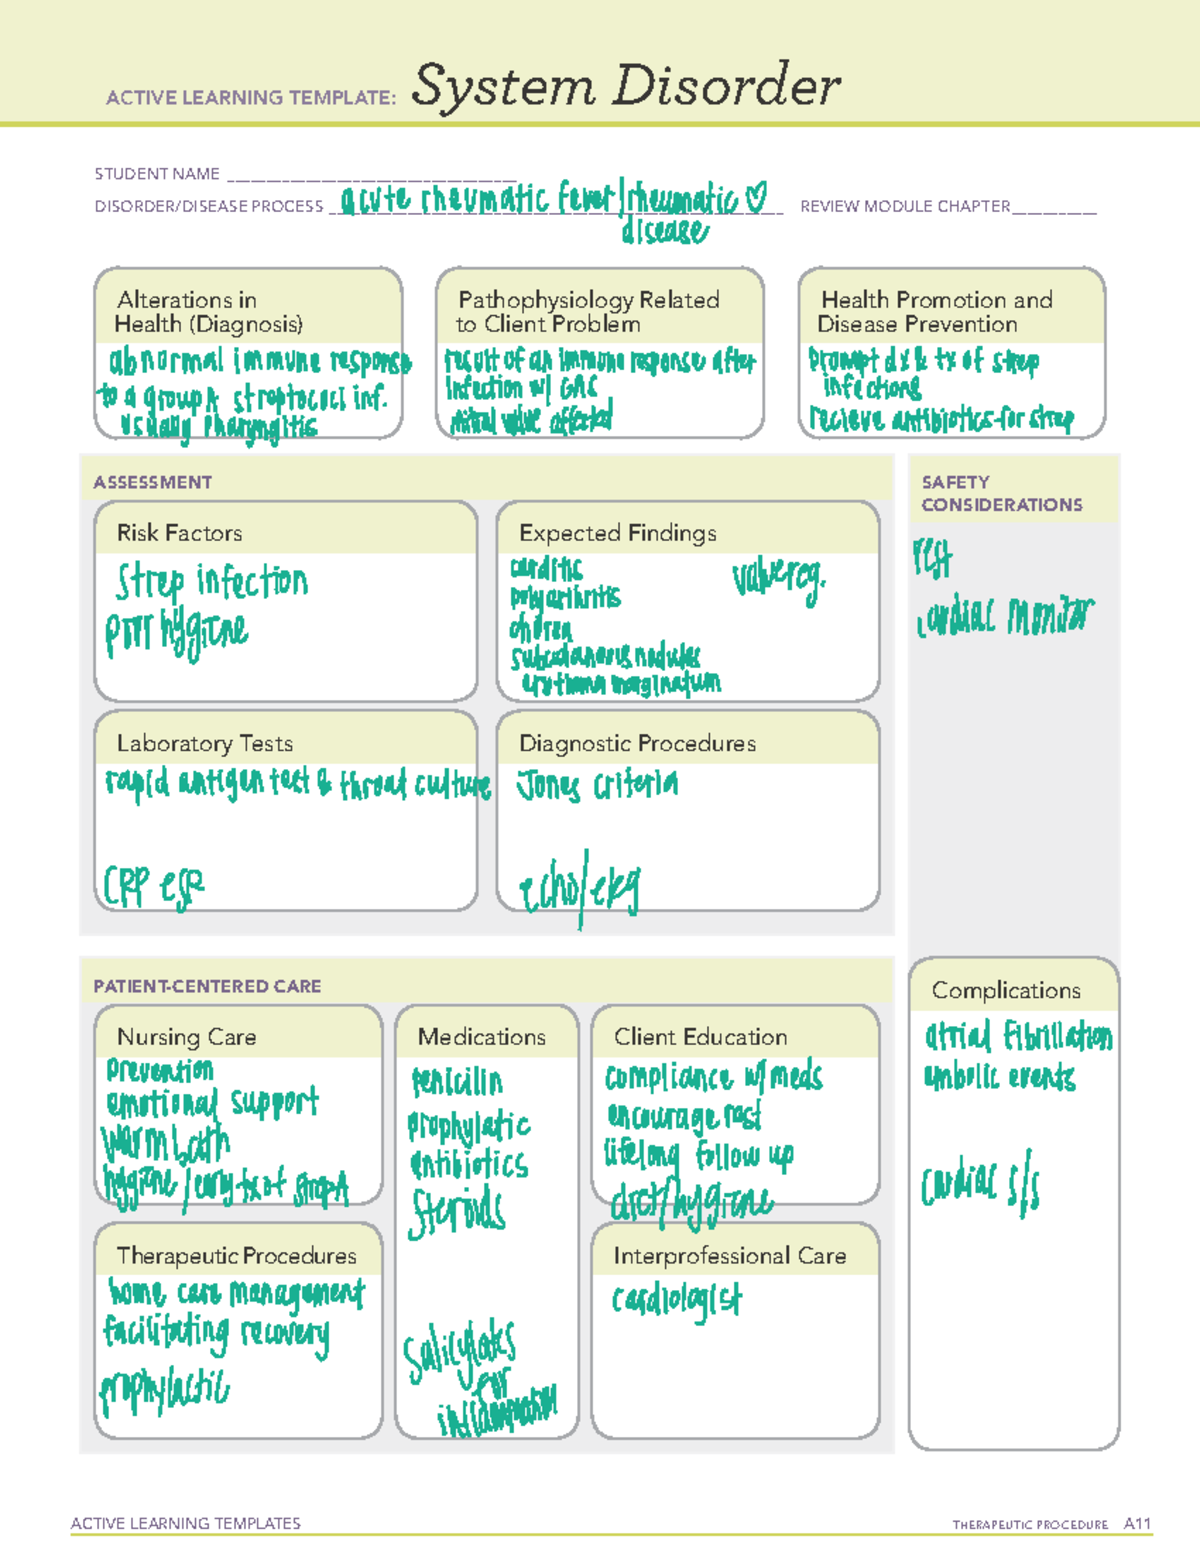 ACTIVE LEARNING TEMPLATE: System Disorder
STUDENT NAME
DISORDER/DISEASE PROCESS acute rheumatic fever/rheumatic ♡
disease
REVIEW MODULE CHAPTER
Alterations in
Health (Diagnosis)
abnormal immune response
to a group A streptococci inf.
usually pharyngitis
Pathophysiology Related
to Client Problem
result of an immune response after
infection w/ GAS
mitral valve affected
Health Promotion and
Disease Prevention
prompt dx & tx of strep
infections
recieve antibiotics for strep
ASSESSMENT
SAFETY
CONSIDERATIONS
rest
cardiac monitor
Risk Factors
Strep infection
poor hygiene
Expected Findings
carditis
polyarthritis
chorea
subcutaneous nodules
erythema marginatum
valve reg.
Laboratory Tests
rapid antigen test & throat culture
CRP esR
Diagnostic Procedures
Jones criteria
echo/ekg
PATIENT-CENTERED CARE
Nursing Care
prevention
emotional support
warm bath
hygiene/early tx of strep A
Medications
penicilin
prophylatic
antibiotics
Steroids
Salicylates
for
inflammation
Client Education
compliance w/ meds
encourage rest
lifelong follow up
diet/hygiene
Complications
atrial fibrillation
embolic events
cardiac s/s
Therapeutic Procedures
home care management
facilitating recovery
prophylactic
Interprofessional Care
cardiologist
ACTIVE LEARNING TEMPLATES
THERAPEUTIC PROCEDURE A11